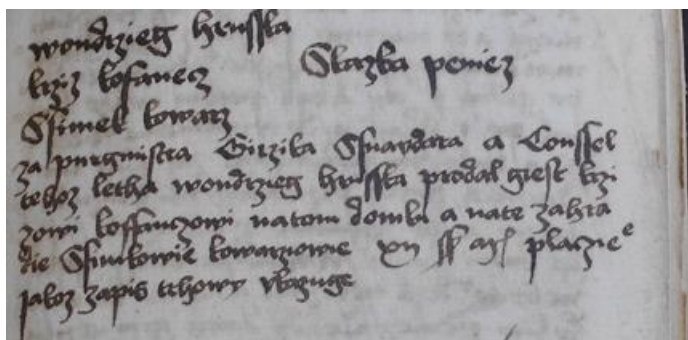 wondrzieg hrusska
krziz kosanecz Slazka peniez
Ssimek kowarz
za purgmistra Girzika Ssnaydara a Conssel
tehoz letha wondrzieg hrusska prodal giest krzi
zowi kossanczowi natom domku a nate zahra
die Ssimkowie kowarzowie xii placzie
jakoz zapis trhowy vkazuge